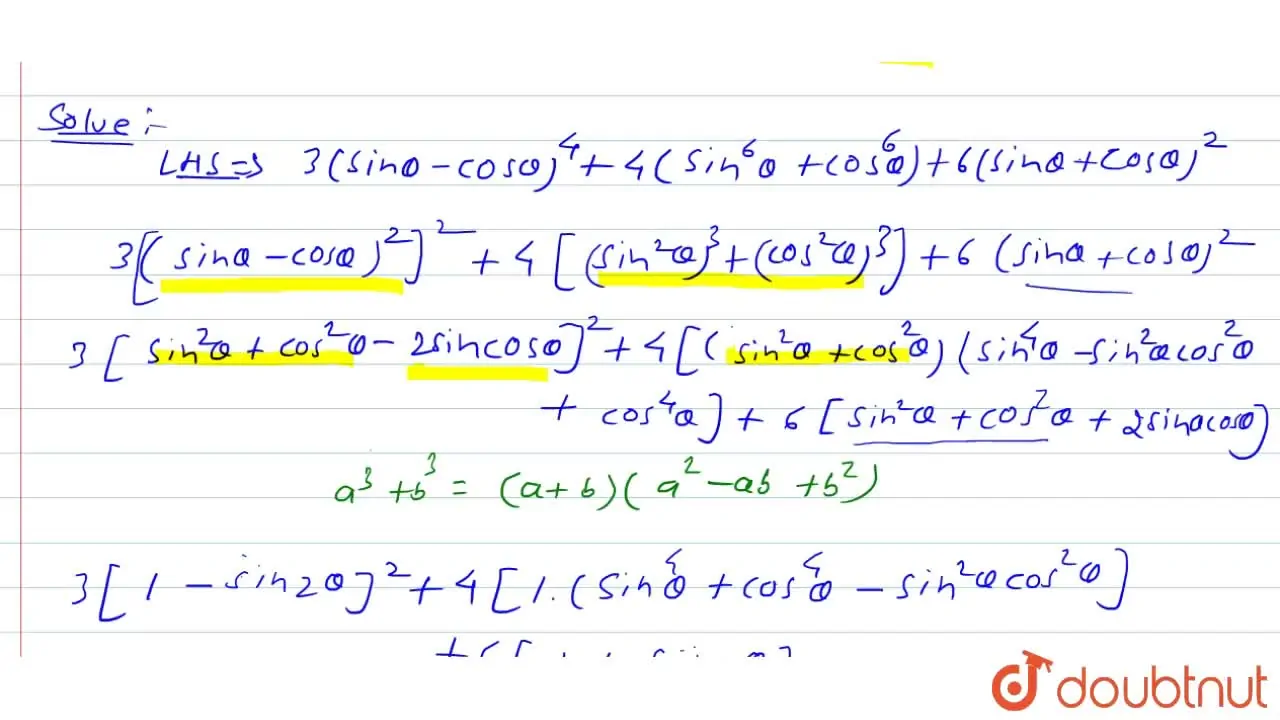 Solve :-
LHS => 3(sinθ - cosθ)⁴ + 4(sin⁶θ + cos⁶θ) + 6(sinθ + cosθ)²
3[(sinθ - cosθ)²]² + 4[(sin²θ)³ + (cos²θ)³] + 6(sinθ + cosθ)²
3[sin²θ + cos²θ - 2sincosθ]² + 4[(sin²θ + cos²θ)(sin⁴θ - sin²θcos²θ
+ cos⁴θ] + 6[sin²θ + cos²θ + 2sinθcosθ]
a³ + b³ = (a + b)(a² - ab + b²)
3[1 - sin2θ]² + 4[1.(sin⁴θ + cos⁴θ - sin²θcos²θ]
doubtnut